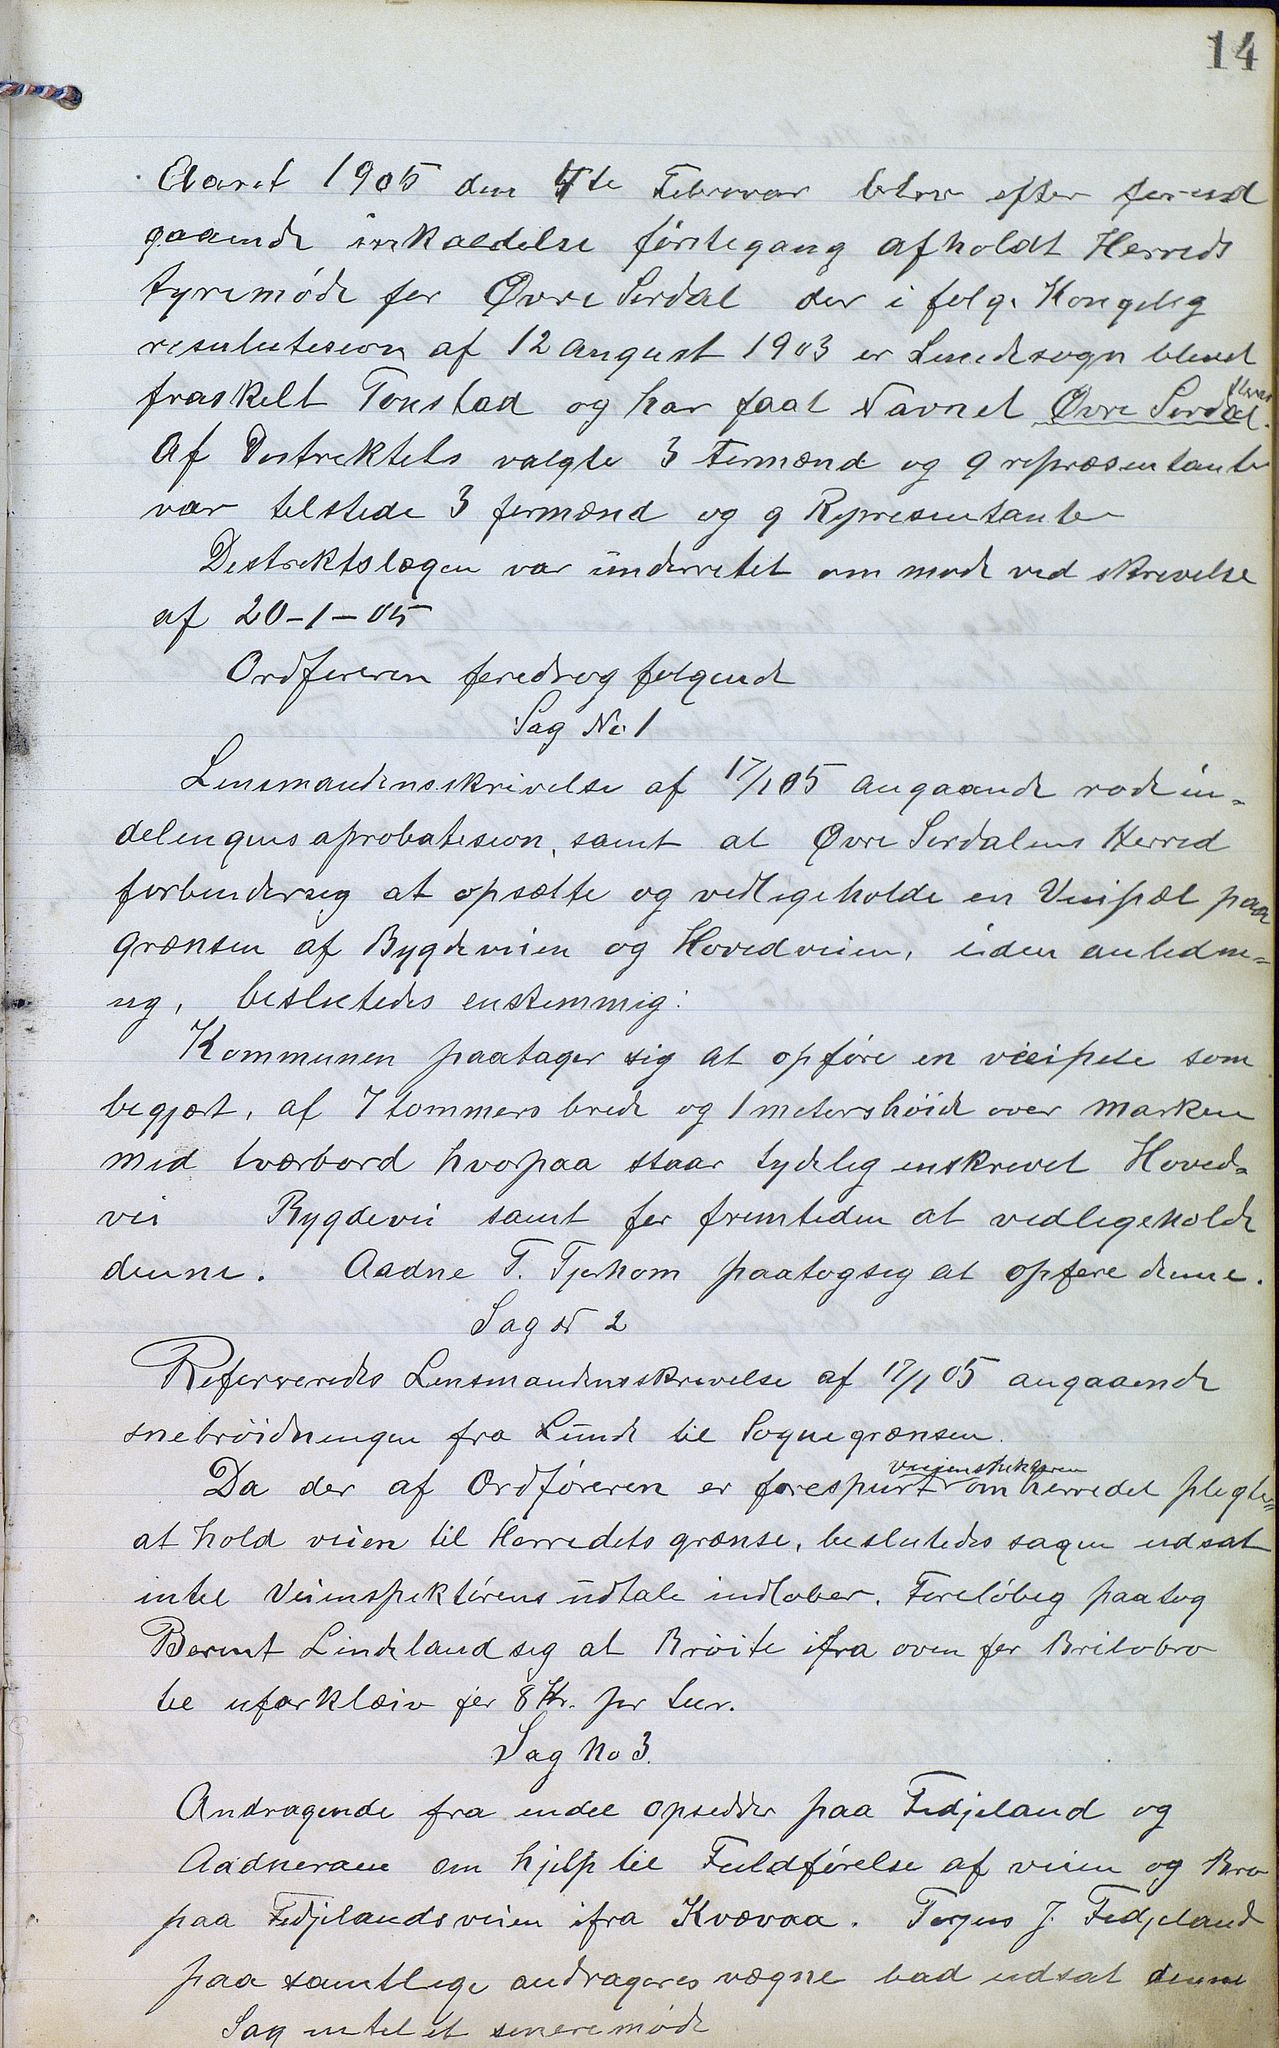 14
Aaret 1905 den 4te Februar blev efter forud
gaaende inkaldelse förstegang afholdt Herreds
tyremöde for Øvre Sirdal der i følge Kongelig
resulutision af 12 August 1903 er Lunde sogn blevet
fraskelt Tonstad og har faat Navnet Øvre Sirdal.
Af Distriktets valgte 3 Formænd og 9 repræsentanter
var tilstede 3 formænd og 9 Representanter
Destriktslægen var underretet om mode ved skrivelse
af 20-1-05
Ordføreren foredrog følgende
Sag No 1
Lensmandensskrivelse af 17/1 05 angaaende rodein-
delingens aprobatision, samt at Øvre Sirdalens Herred
forbindersig at opsætte og vedligeholde en Veipæl paa
grænsen af Bygdeveien og Hovedveien, i den anledni-
ng, beslutedes enstemmig:
Kommunen paatager sig at opføre en veipele som
begjært, af 7 tommers brede og 1 metershöide over marken
med tværbord hvorpaa staar tydelig enskrevet Hoved-
vei Bygdevei samt for fremtiden at vedligeholde
denne. Aadne T. Tjørhom paatogsig at opføre denne.
Sag N 2
Refereredes Lensmandensskrivelse af 17/1 05 angaaende
snebröidningen fra Lunde til Sognegrænsen.
veiinspektøren
Da der af Ordføreren er forespurt om herredet pligter
at hold veien til Herredets grænse, beslutedes sagen udsat
intil Veiinspektørens udtale indløber. Foreløbig paatog
Bernt Lindeland sig at Bröite ifra oven for Brilobro
til uforklæiv for 8 Kr. per tur.
Sag No 3.
Andragende fra endel opsedder paa Fidjeland og
Aadneram om hjelp til Fuldførelse af veien og Bro
paa Fidjelandsveien ifra Kvævaa. Torjus J. Fidjeland
paa samtlige andrageres vægne bad udsat denne
Sag intil et senere möde